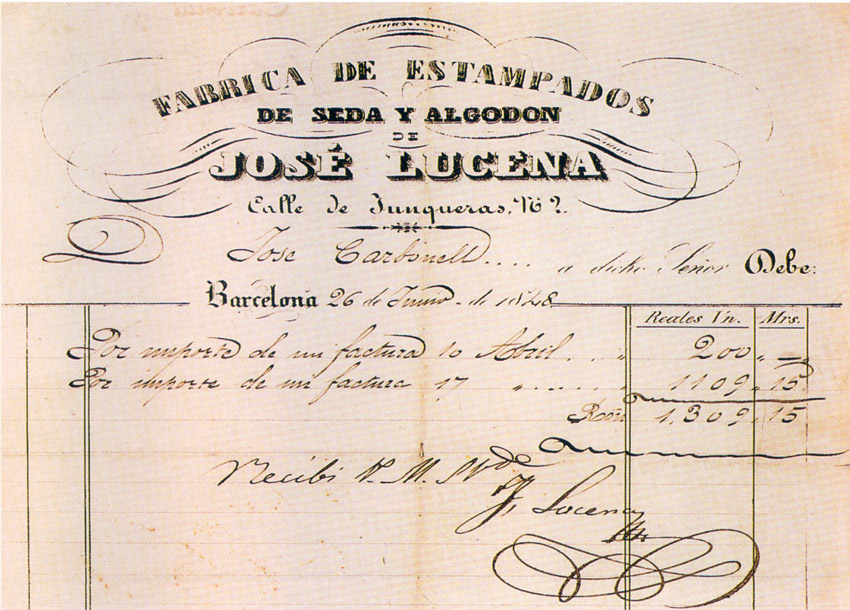 FABRICA DE ESTAMPADOS
DE SEDA Y ALGODON
DE
JOSÉ LUCENA
Calle de Junqueras, Nº 2.
Jose Carbonell.... a dicho Señor Debe:
Barcelona 26 de Junio de 1848
Reales Vn. Mrs.
Por importe de mi factura 10 Abril... " 200 " — "
Por importe de mi factura 17 " ..... " 1109 " 15
Rvn 1.309 " 15
Recibi P.
J. Lucena